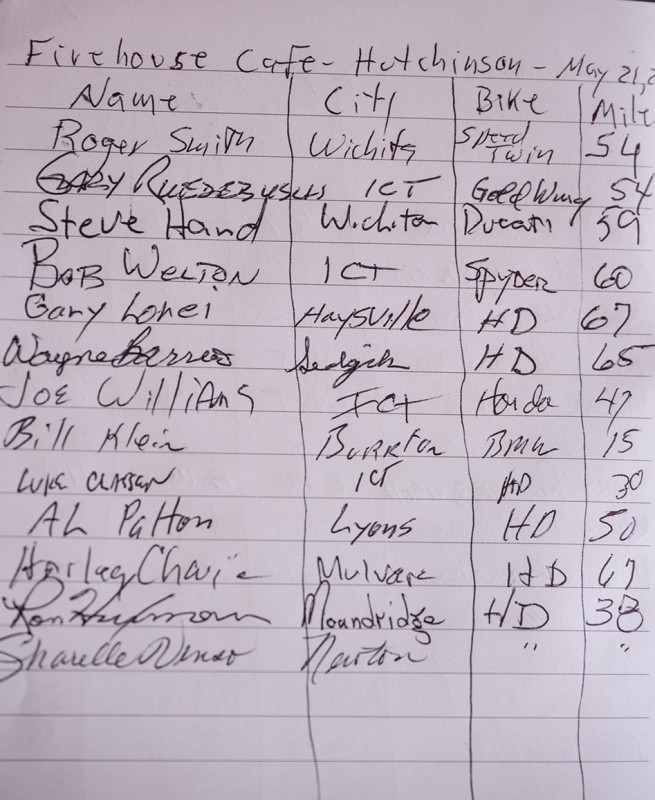 Firehouse Cafe - Hutchinson - May 21, 2
Name City Bike Mile
Roger Smith Wichita Speed Twin 54
GARY RUEDEBUSCH ICT Gold Wing 54
Steve Hand Wichita Ducati 59
BOB WELTON ICT Spyder 60
Gary Lohei Haysville HD 67
Wayne HD 65
JOE WilliAMS ICT Honda 47
Bill Klein BURRton BMW 15
LUKE CLASSEN ICT HD 30
AL Patton Lyons HD 50
Harley Mulvane HD 67
Ron Moundridge HD 38
Newton " "